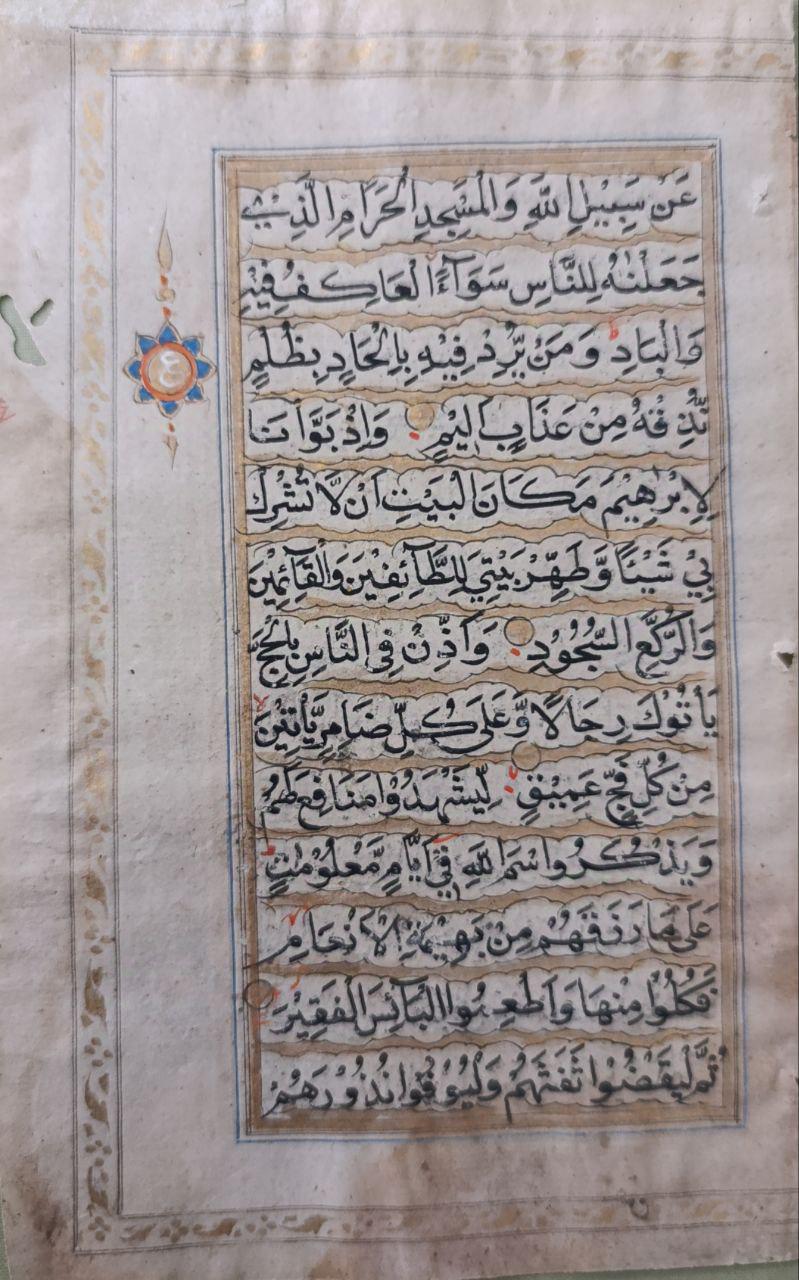 عَنْ سَبِيْلِ اللّٰهِ وَالْمَسْجِدِ الْحَرَامِ الَّذِيْ
جَعَلْنٰهُ لِلنَّاسِ سَوَآءً الْعَاكِفُ فِيْهِ
وَالْبَادِ وَمَنْ يُّرِدْ فِيْهِ بِاِلْحَادٍ بِظُلْمٍ
نُّذِقْهُ مِنْ عَذَابٍ اَلِيْمٍ وَاِذْ بَوَّاْنَا
لِاِبْرٰهِيْمَ مَكَانَ الْبَيْتِ اَنْ لَّا تُشْرِكْ
بِيْ شَيْئًا وَّطَهِّرْ بَيْتِيَ لِلطَّآئِفِيْنَ وَالْقَآئِمِيْنَ
وَالرُّكَّعِ السُّجُوْدِ وَاَذِّنْ فِي النَّاسِ بِالْحَجِّ
يَاْتُوْكَ رِجَالًا وَّعَلٰى كُلِّ ضَامِرٍ يَّاْتِيْنَ
مِنْ كُلِّ فَجٍّ عَمِيْقٍ لِّيَشْهَدُوْا مَنَافِعَ لَهُمْ
وَيَذْكُرُوا اسْمَ اللّٰهِ فِيْ اَيَّامٍ مَّعْلُوْمٰتٍ
عَلٰى مَا رَزَقَهُمْ مِنْ بَهِيْمَةِ الْاَنْعَامِ
فَكُلُوْا مِنْهَا وَاَطْعِمُوا الْبَآئِسَ الْفَقِيْرَ
ثُمَّ لْيَقْضُوْا تَفَثَهُمْ وَلْيُوْفُوْا نُذُوْرَهُمْ